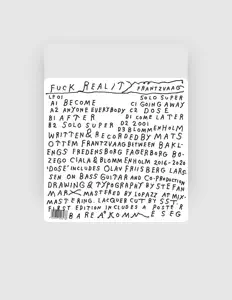 FUCK REALITY FRANTZVAAG
LP 01 SOLO SUPER
A1 BECOME C1 GOING AWAY
A2 ANYONE EVERYBODY C2 DOSE
B1 AFTER D1 COME LATER
B2 SOLO SUPER D2 2001
D3 BLOMMENHOLM
WRITTEN & RECORDED BY MATS
OTTEM FRANTZVAAG BETWEEN BAKL-
ENGS FREDENSBORG FAGERBORG BO-
ZEGO CIALA & BLOMMENHOLM 2016-2020
'DOSE' INCLUDES OLAV FRIISBERG LARS-
SEN ON BASS GUITAR AND CO-PRODUCTION
DRAWING & TYPOGRAPHY BY STEFAN
MARX MASTERED BY LOPAZZ AT MIX-
MASTERING. LACQUER CUT BY SST
FIRST EDITION INCLUDES A POSTER
BARE Å KOMME SEG